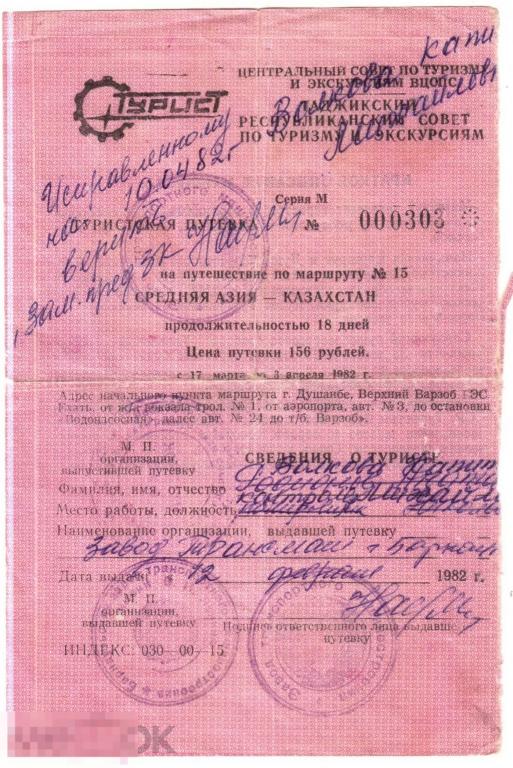 ТУРИСТ
ЦЕНТРАЛЬНЫЙ СОВЕТ ПО ТУРИЗМУ
И ЭКСКУРСИЯМ ВЦСПС
ТАДЖИКСКИЙ
РЕСПУБЛИКАНСКИЙ СОВЕТ
ПО ТУРИЗМУ И ЭКСКУРСИЯМ
Волкова
Исправленному
на 10.04.82г
верить
Зам. пред ЗК
Серия М
ТУРИСТСКАЯ ПУТЕВКА № 000303
на путешествие по маршруту № 15
СРЕДНЯЯ АЗИЯ — КАЗАХСТАН
продолжительностью 18 дней
Цена путевки 156 рублей.
с 17 марта по 3 апреля 1982 г.
Адрес начального пункта маршрута г. Душанбе, Верхний Варзоб ГЭС
Ехать, от ж/д вокзала трол. № 1, от аэропорта, авт. № 3, до остановки
«Водонасосная» далее авт. № 24 до т/б. Варзоб».
М. П.
организации,
выпустившей путевку
СВЕДЕНИЯ О ТУРИСТЕ
Волкова
Фамилия, имя, отчество
Место работы, должность
Наименование организации, выдавшей путевку
Завод Трансмаш г. Барнаул
Дата выдачи 12 февраля 1982 г.
М. П.
организации,
выдавшей путевку
Подпись ответственного лица выдавшего
путевку
ИНДЕКС: 030—00—15